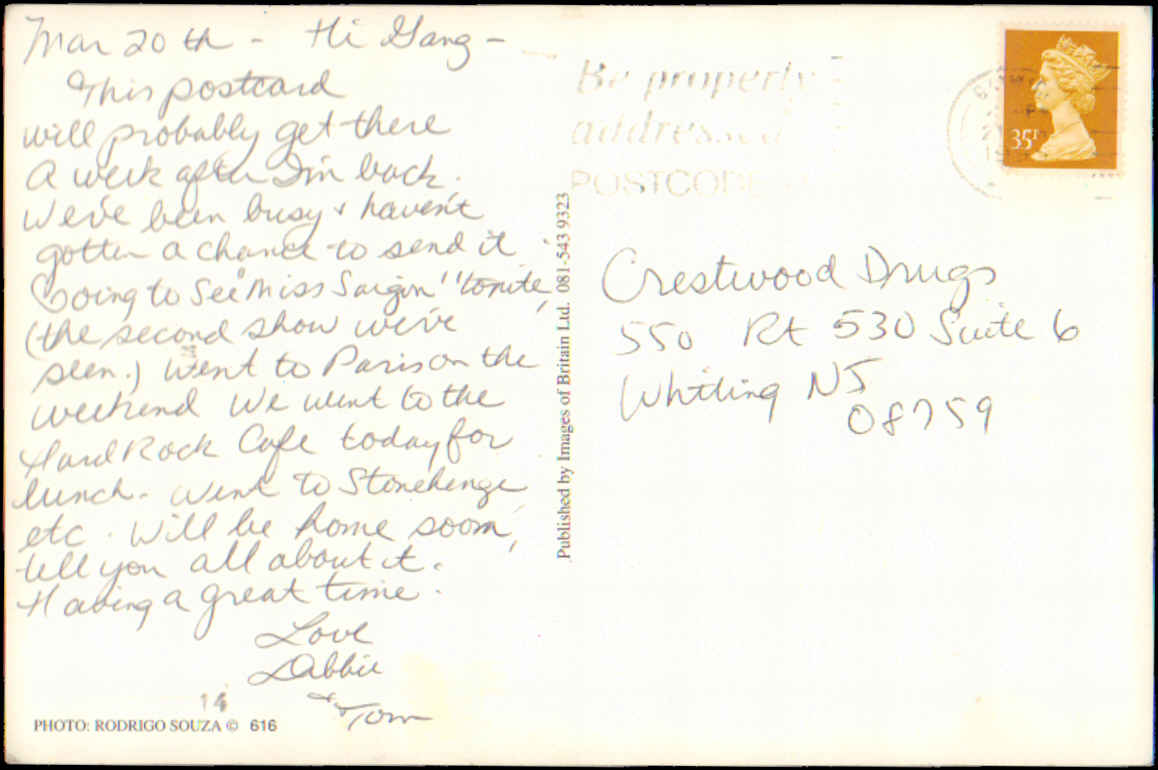 Mar 20th - Hi Gang -
This postcard
will probably get there
A week after I'm back.
We've been busy & haven't
gotten a chance to send it.
Going to see "Miss Saigon" tonite,
(the second show we've
seen.) Went to Paris on the
weekend We went to the
Hard Rock Cafe today for
lunch - Went to Stonehenge
etc. Will be home soon,
tell you all about it.
Having a great time.
Love
Debbie
& Tom
14
PHOTO: RODRIGO SOUZA © 616
Published by Images of Britain Ltd. 081-543 9323
Be properly
addressed
POSTCODE
35P
Crestwood Drugs
550 Rt 530 Suite 6
Whiting NJ
08759